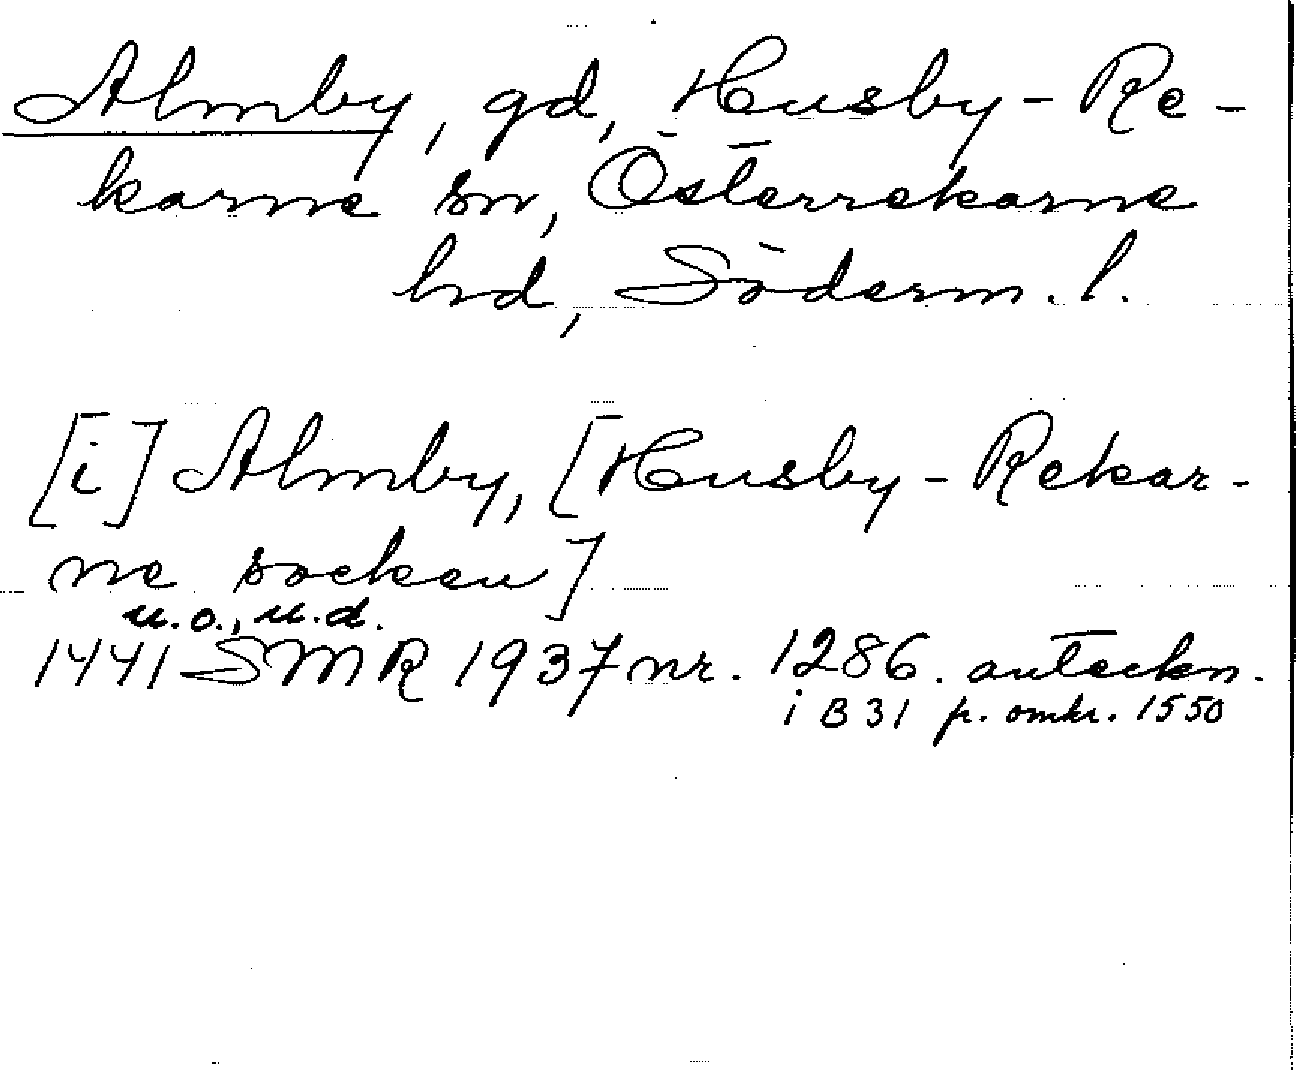 Almby, gd, Husby-Re-
karne sn, Österrekarne
hd, Söderm. l.
[i] Almby, [Husby-Rekar-
ne socken]
u.o., u.d.
1441 SMR 1937 nr. 1286. anteckn.
i B 31 p. omkr. 1550